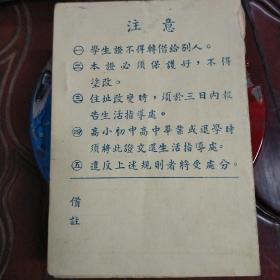 注意
㊀學生證不得轉借給別人。
㊁本證必須保護好，不得
塗改。
㊂住址改變時，須於三日內報
告生活指導處。
㊃高小初中高中畢業或退學時
須將此證交還生活指導處。
㊄違反上述規則者將受處分。
備
註